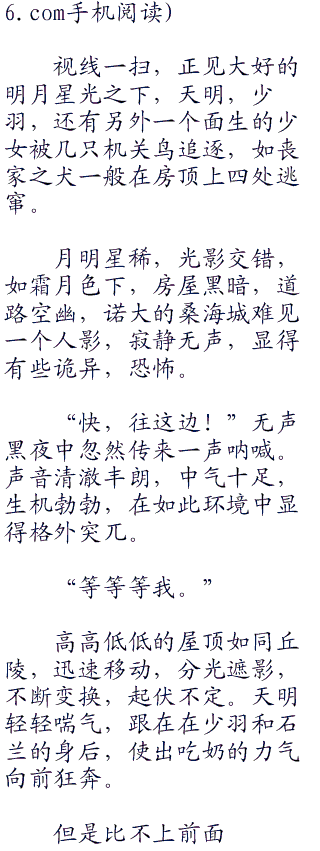 6.com手机阅读）
视线一扫，正见大好的
明月星光之下，天明，少
羽，还有另外一个面生的少
女被几只机关鸟追逐，如丧
家之犬一般在房顶上四处逃
窜。
月明星稀，光影交错，
如霜月色下，房屋黑暗，道
路空幽，诺大的桑海城难见
一个人影，寂静无声，显得
有些诡异，恐怖。
“快，往这边！”无声
黑夜中忽然传来一声呐喊。
声音清澈丰朗，中气十足，
生机勃勃，在如此环境中显
得格外突兀。
“等等等我。”
高高低低的屋顶如同丘
陵，迅速移动，分光遮影，
不断变换，起伏不定。天明
轻轻喘气，跟在在少羽和石
兰的身后，使出吃奶的力气
向前狂奔。
但是比不上前面